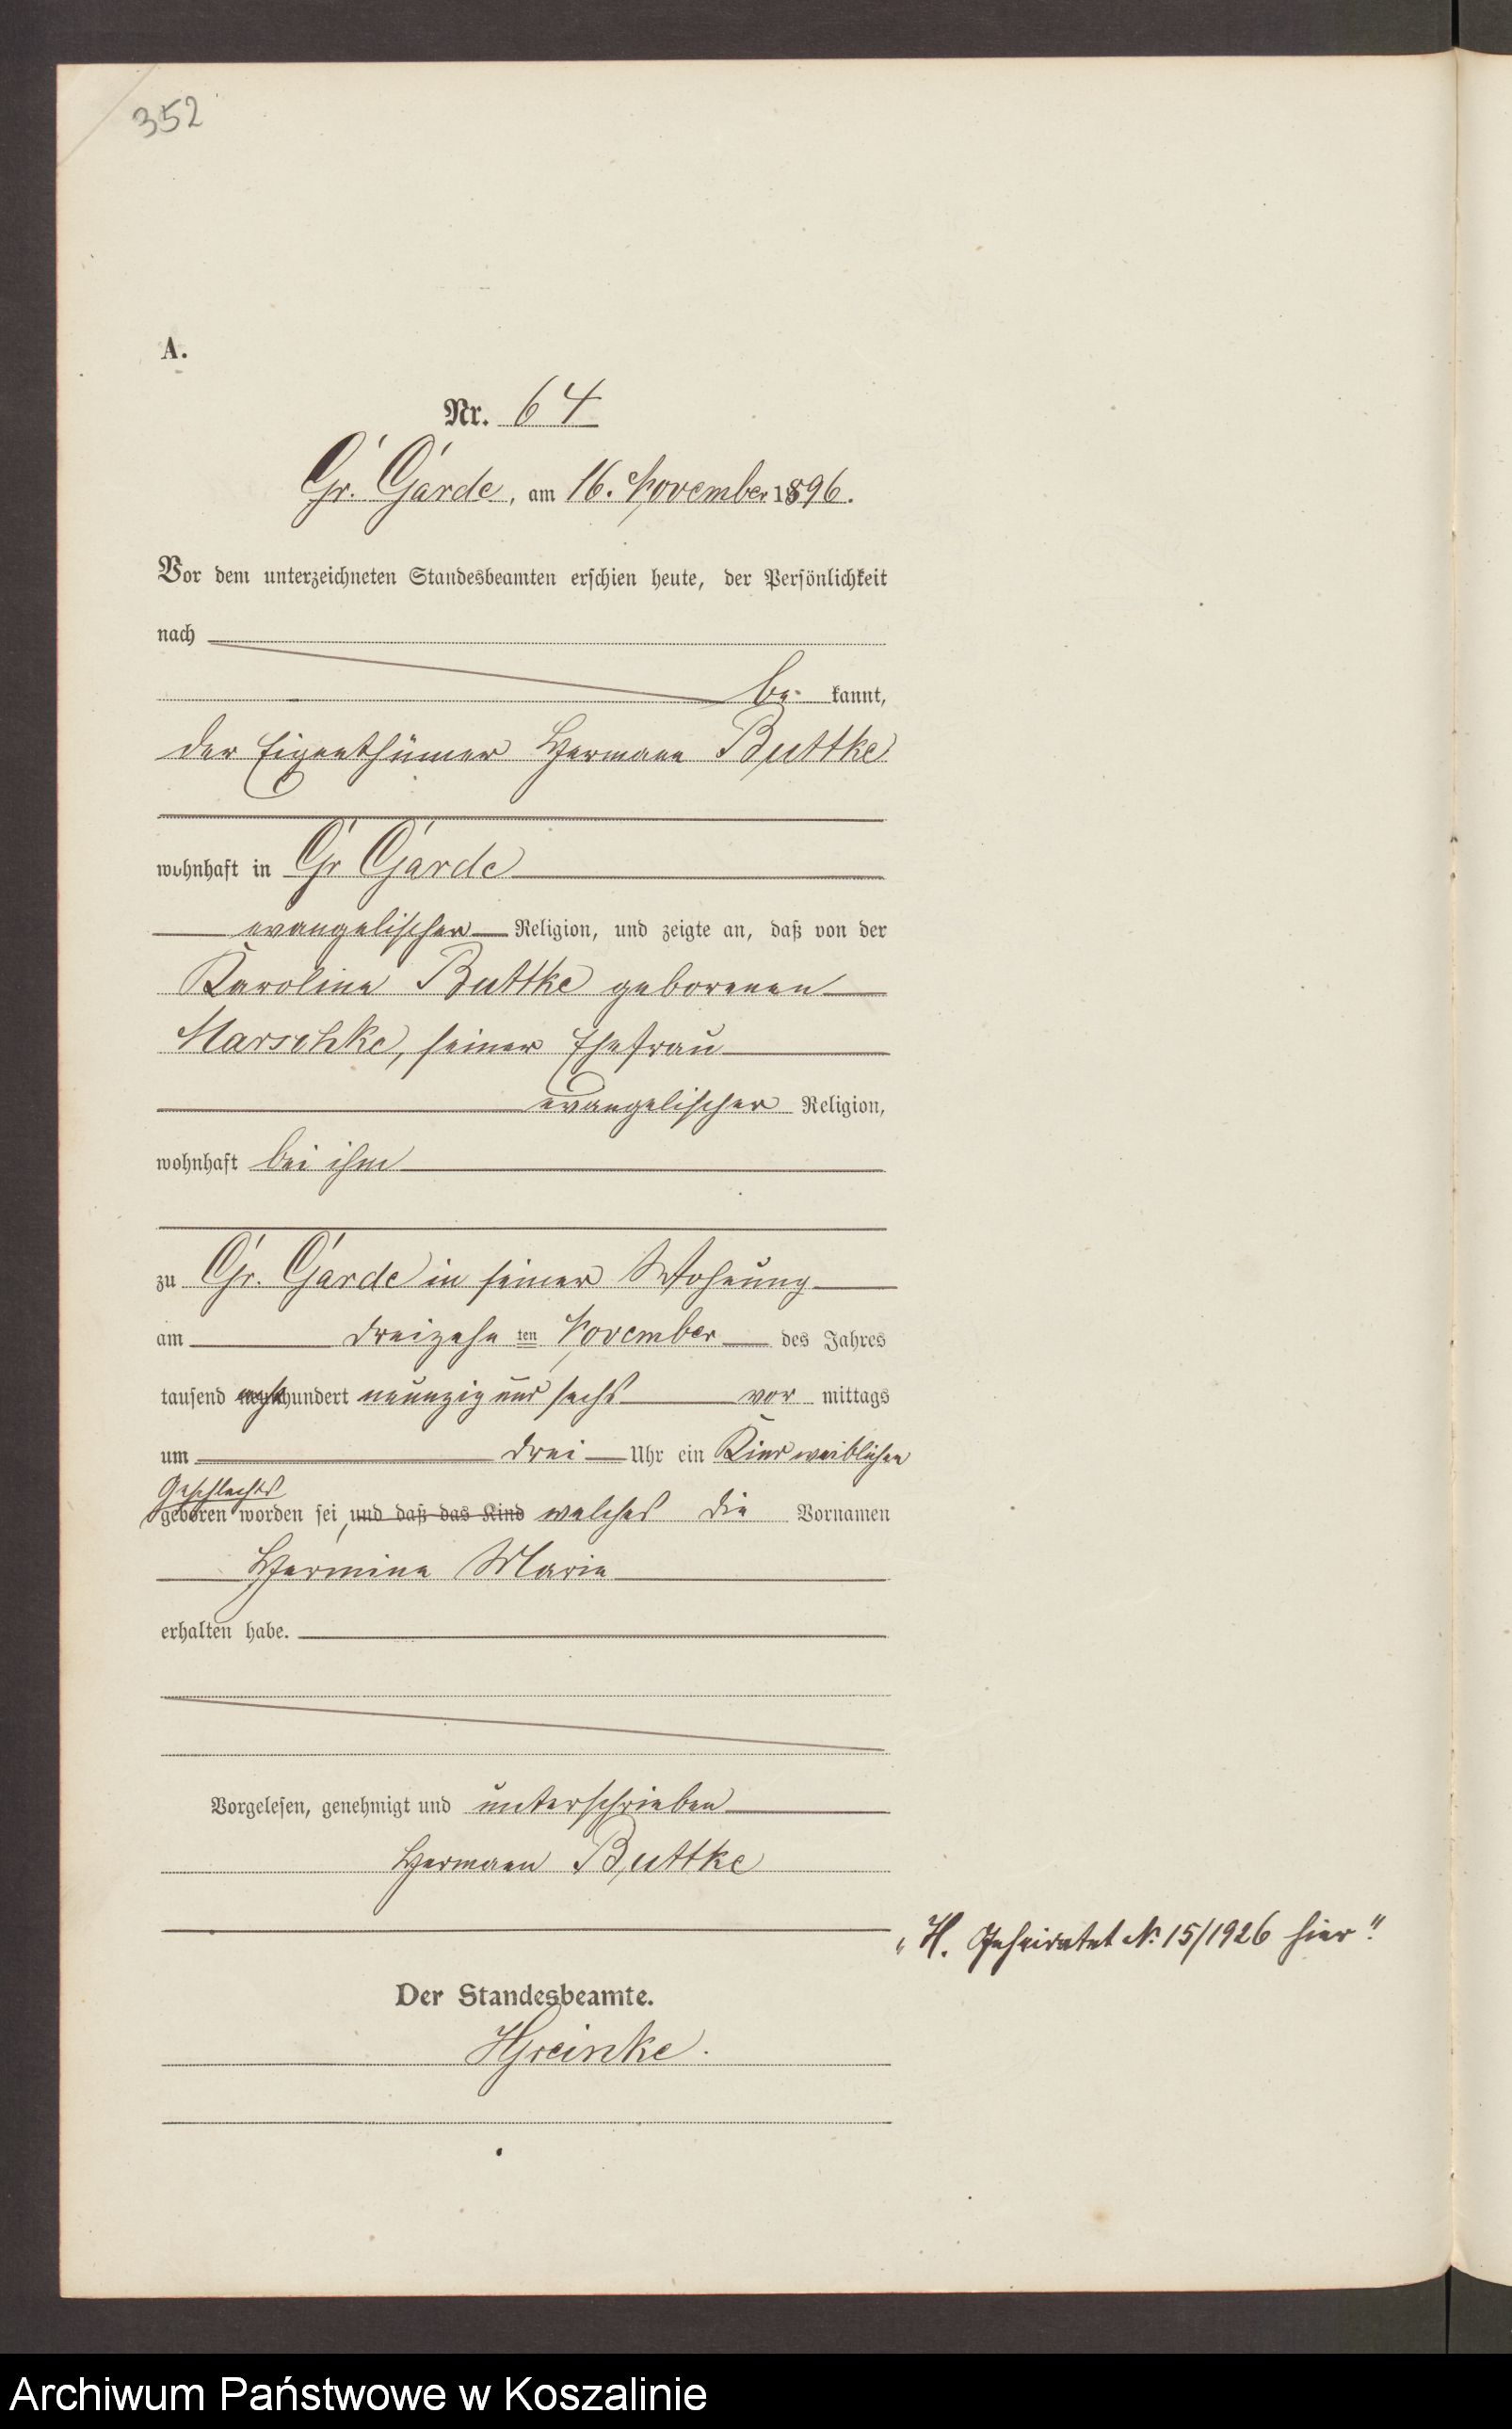 352
A.
Nr. 64
Gr. Garde, am 16. November 1896.
Vor dem unterzeichneten Standesbeamten erschien heute, der Persönlichkeit
nach
be- kannt,
der Eigenthümer Hermann Buttke
wohnhaft in Gr Garde
evangelischer Religion, und zeigte an, daß von der
Karoline Buttke geborenen
Marschke, seiner Ehefrau
evangelischer Religion,
wohnhaft bei ihm
zu Gr. Garde in seiner Wohnung
am dreizehn ten November des Jahres
tausend acht hundert neunzig und sechs vor mittags
um drei Uhr ein Kind weiblichen
Geschlechts
geboren worden sei, und daß das Kind welches die Vornamen
Hermine Marie
erhalten habe.
Vorgelesen, genehmigt und unterschrieben
Hermann Buttke
„H. Geheiratet N. 15/1926 hier"
Der Standesbeamte.
Archiwum Państwowe w Koszalinie